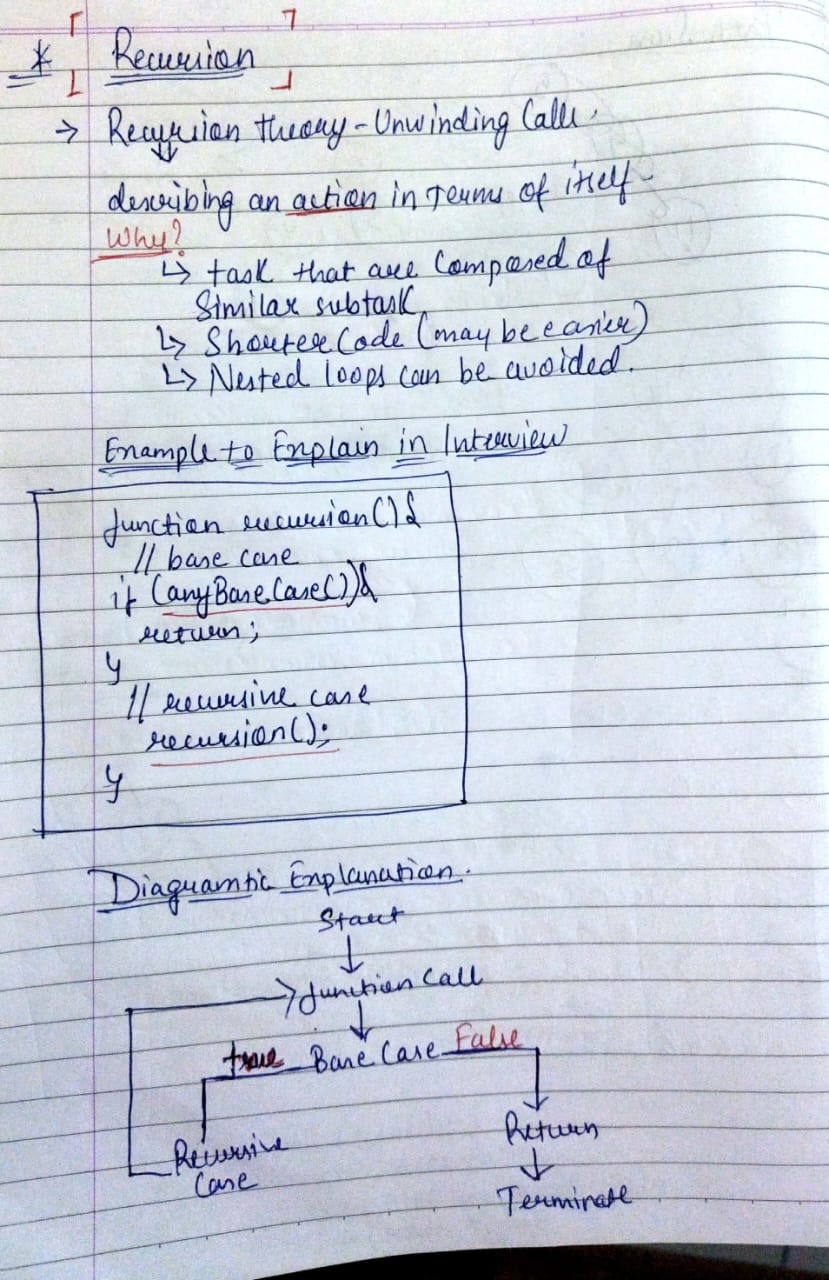 * Recursion
→ Recursion theory - Unwinding Calls.
describing an action in Terms of itself
Why?
↳ task that are Composed of
Similar subtask
↳ Shorter Code (may be easier)
↳ Nested loops can be avoided.
Example to Explain in Interview
function recursion(){
// base case
if (anyBaseCase()){
return;
}
// recursive case
recursion();
}
Diagramtic Explanation.
Start
function Call
true Base Case False
Recursive
Case
Return
Terminate